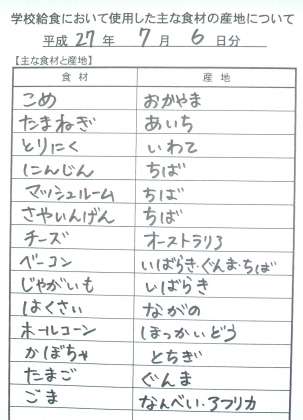 学校給食において使用した主な食材の産地について
平成 27 年 7 月 6 日分
【主な食材と産地】
食材 産地
こめ おかやま
たまねぎ あいち
とりにく いわて
にんじん ちば
マッシュルーム ちば
さやいんげん ちば
チーズ オーストラリア
ベーコン いばらき・ぐんま・ちば
じゃがいも いばらき
はくさい ながの
ホールコーン ほっかいどう
かぼちゃ とちぎ
たまご ぐんま
ごま なんべい・アフリカ